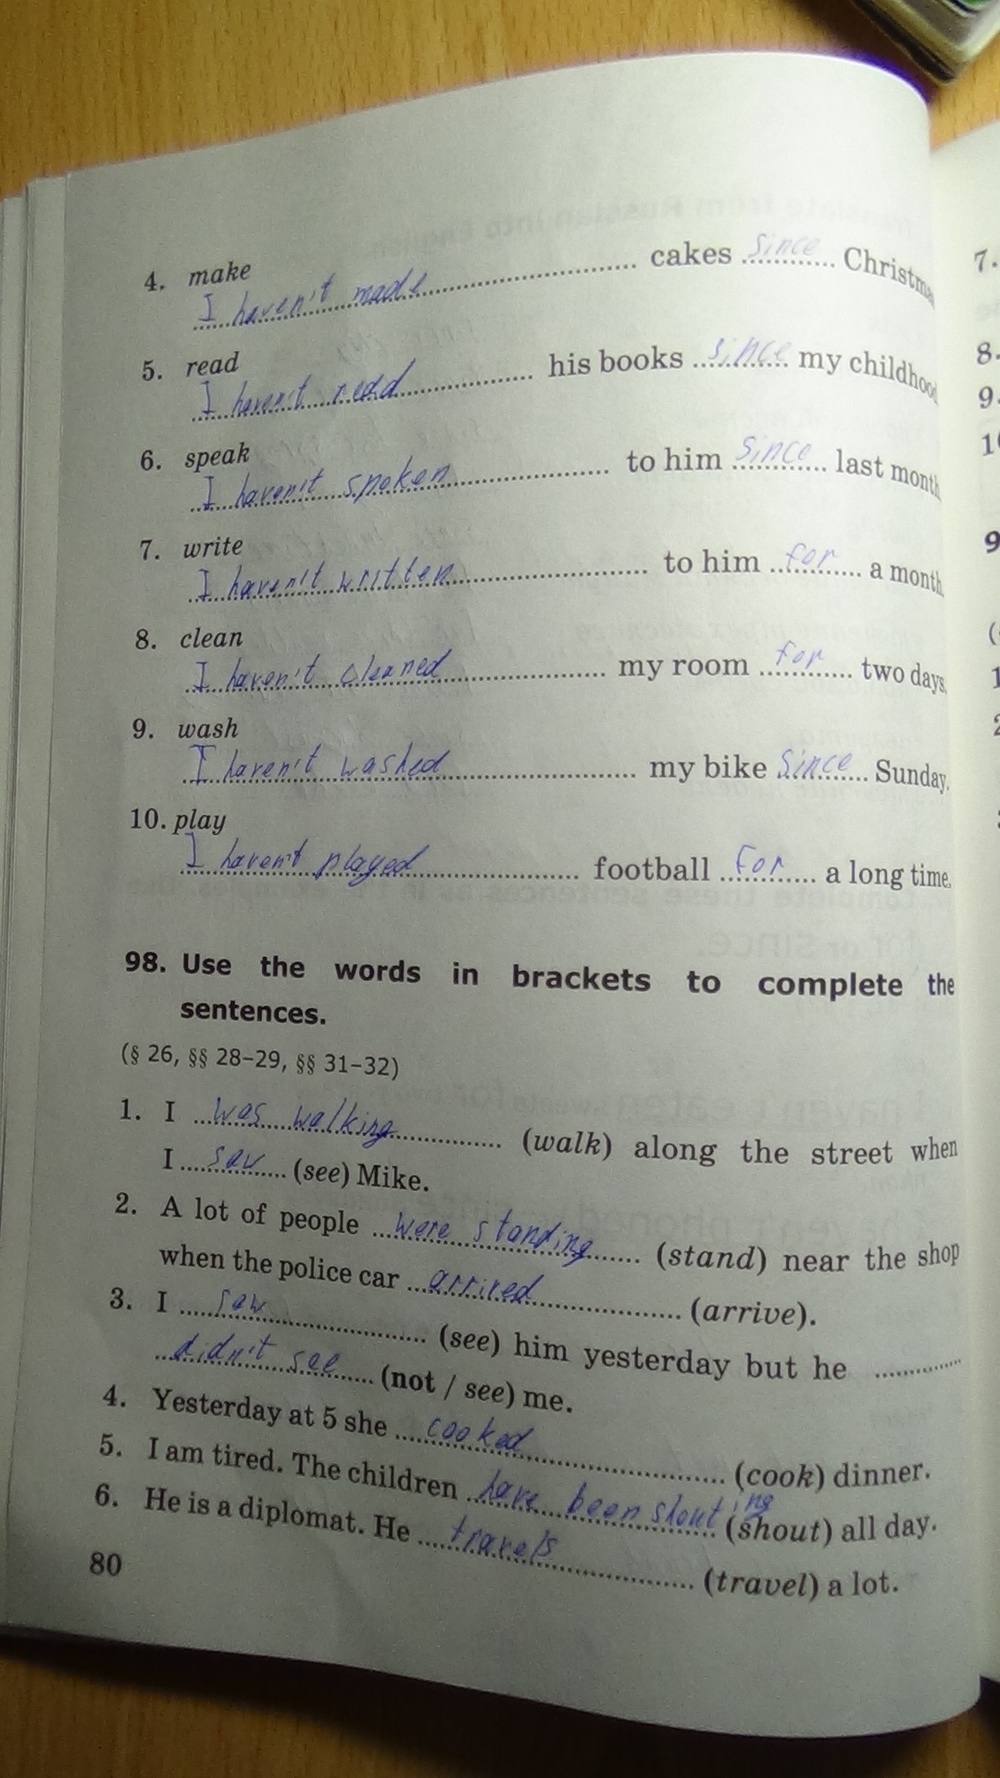 4. make
I haven't made cakes since Christma
5. read
I haven't read his books since my childhood
6. speak
I haven't spoken to him since last month
7. write
I haven't written to him for a month
8. clean
I haven't cleaned my room for two days.
9. wash
I haven't washed my bike since Sunday.
10. play
I haven't played football for a long time.
98. Use the words in brackets to complete the
sentences.
(§ 26, §§ 28–29, §§ 31–32)
1. I was walking (walk) along the street when
I saw (see) Mike.
2. A lot of people were standing (stand) near the shop
when the police car arrived (arrive).
3. I saw (see) him yesterday but he
didn't see (not / see) me.
4. Yesterday at 5 she cooked (cook) dinner.
5. I am tired. The children have been shouting (shout) all day.
6. He is a diplomat. He travels (travel) a lot.
80
7.
8.
9.